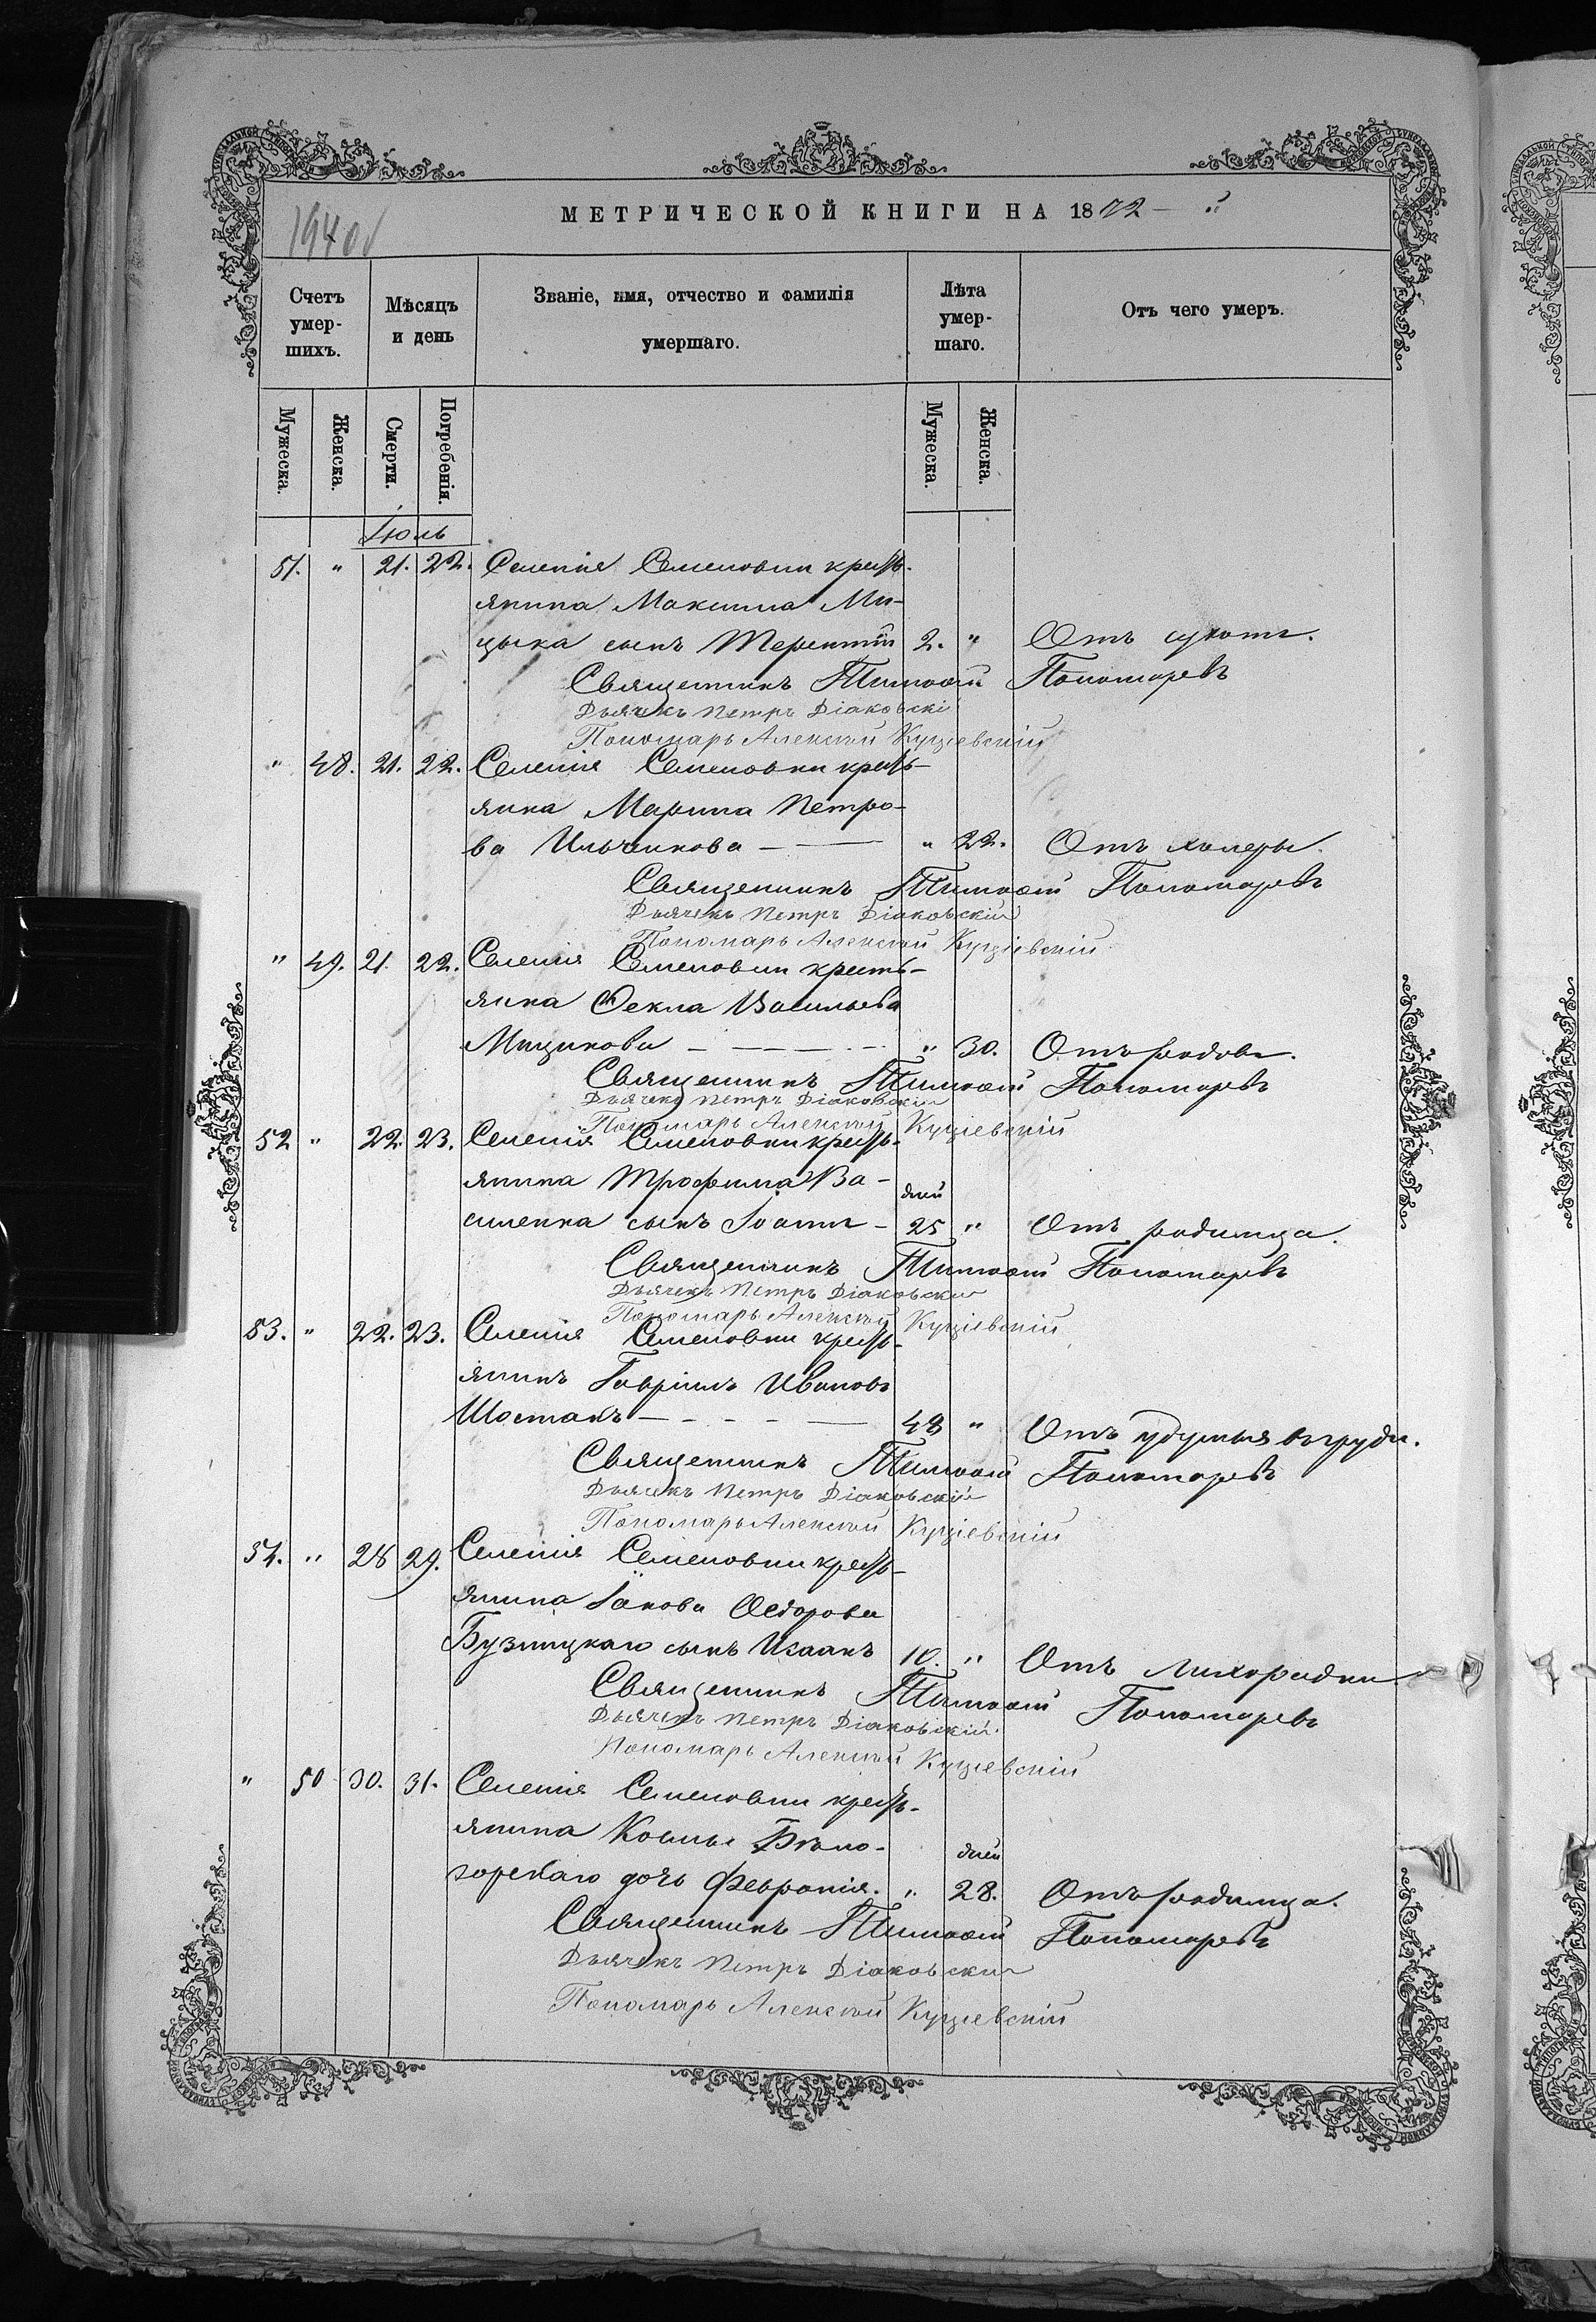 МЕТРИЧЕСКОЙ КНИГИ НА 1872 – й
Счетъ умер-шихъ.
Мѣсяцъ и день
Званіе, имя, отчество и фамилія умершаго.
Лѣта умер-шаго.
Отъ чего умеръ.
Мужеска. Женска. Смерти. Погребенія. Мужеска. Женска.
Іюль
51. " 21. 22. Селенія Семеновки кресть-
янина Максима Ми-
цыка сынъ Терентій 2. " Отъ сухотъ.
Священникъ Тимоѳей Пономаревъ
Дьячекъ Петръ Діаковскій
Пономарь Алексѣй Куціевскій
" 48. 21. 22. Селенія Семеновки кресть-
янка Марина Петро-
ва Ильченкова " 22. Отъ холеры.
Священникъ Тимоѳей Пономаревъ
Дьячекъ Петръ Діаковскій
Пономарь Алексѣй Куціевскій
" 49. 21. 22. Селенія Семеновки кресть-
янка Ѳекла Васильева
Мицикова " 30. Отъ родовъ.
Священникъ Тимоѳей Пономаревъ
Дьячекъ Петръ Діаковскій
Пономарь Алексѣй Куціевскій
52 " 22. 23. Селенія Семеновки кресть-
янина Трофима Ва-
дней
силенка сынъ Іоаннъ – 25 " Отъ родимца.
Священникъ Тимоѳей Пономаревъ
Дьячекъ Петръ Діаковскій
Пономарь Алексѣй Куціевскій
53. " 22. 23. Селенія Семеновки кресть-
янинъ Гавріилъ Ивановъ
Шостакъ 48 " Отъ удушья въ груди.
Священникъ Тимоѳей Пономаревъ
Дьячекъ Петръ Діаковскій
Пономарь Алексѣй Куціевскій
54. " 28 29. Селенія Семеновки кресть-
янина Іакова Ѳедорова
Бузницкаго сынъ Исаакъ 10. " Отъ лихорадки
Священникъ Тимоѳей Пономаревъ
Дьячекъ Петръ Діаковскій
Пономарь Алексѣй Куціевскій
" 50 30. 31. Селенія Семеновки кресть-
янина Косьмы Бѣло-
дней
горскаго дочь Февронія. " 28. Отъ родимца.
Священникъ Тимоѳей Пономаревъ
Дьячекъ Петръ Діаковскій
Пономарь Алексѣй Куціевскій